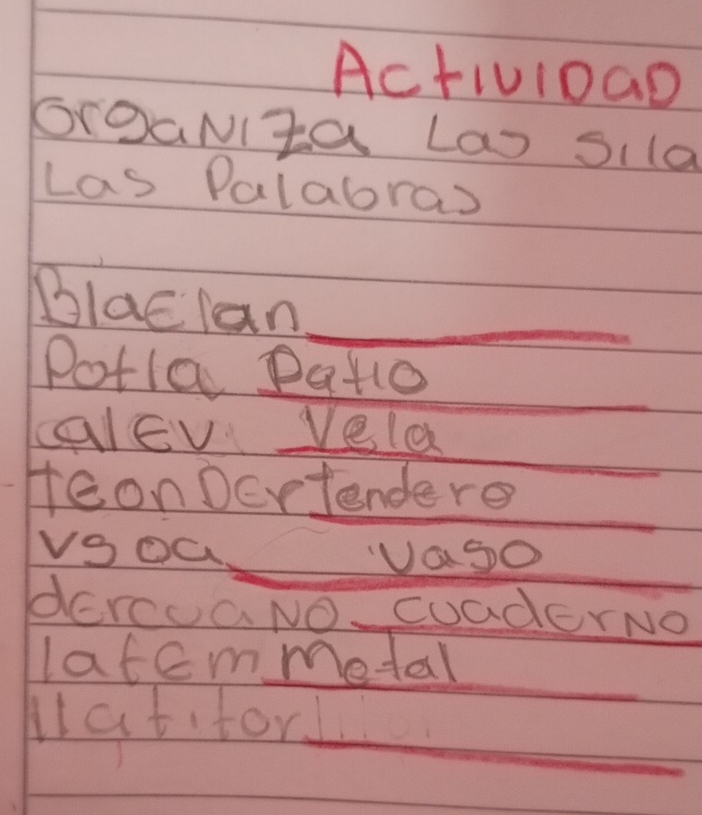 Actividad
organiza Las sila
Las Palabras
BlaElan
Potla Patio
calev Vela
teonder tendero
vsoa vaso
dercuano cuaderno
latem metal
llatitor